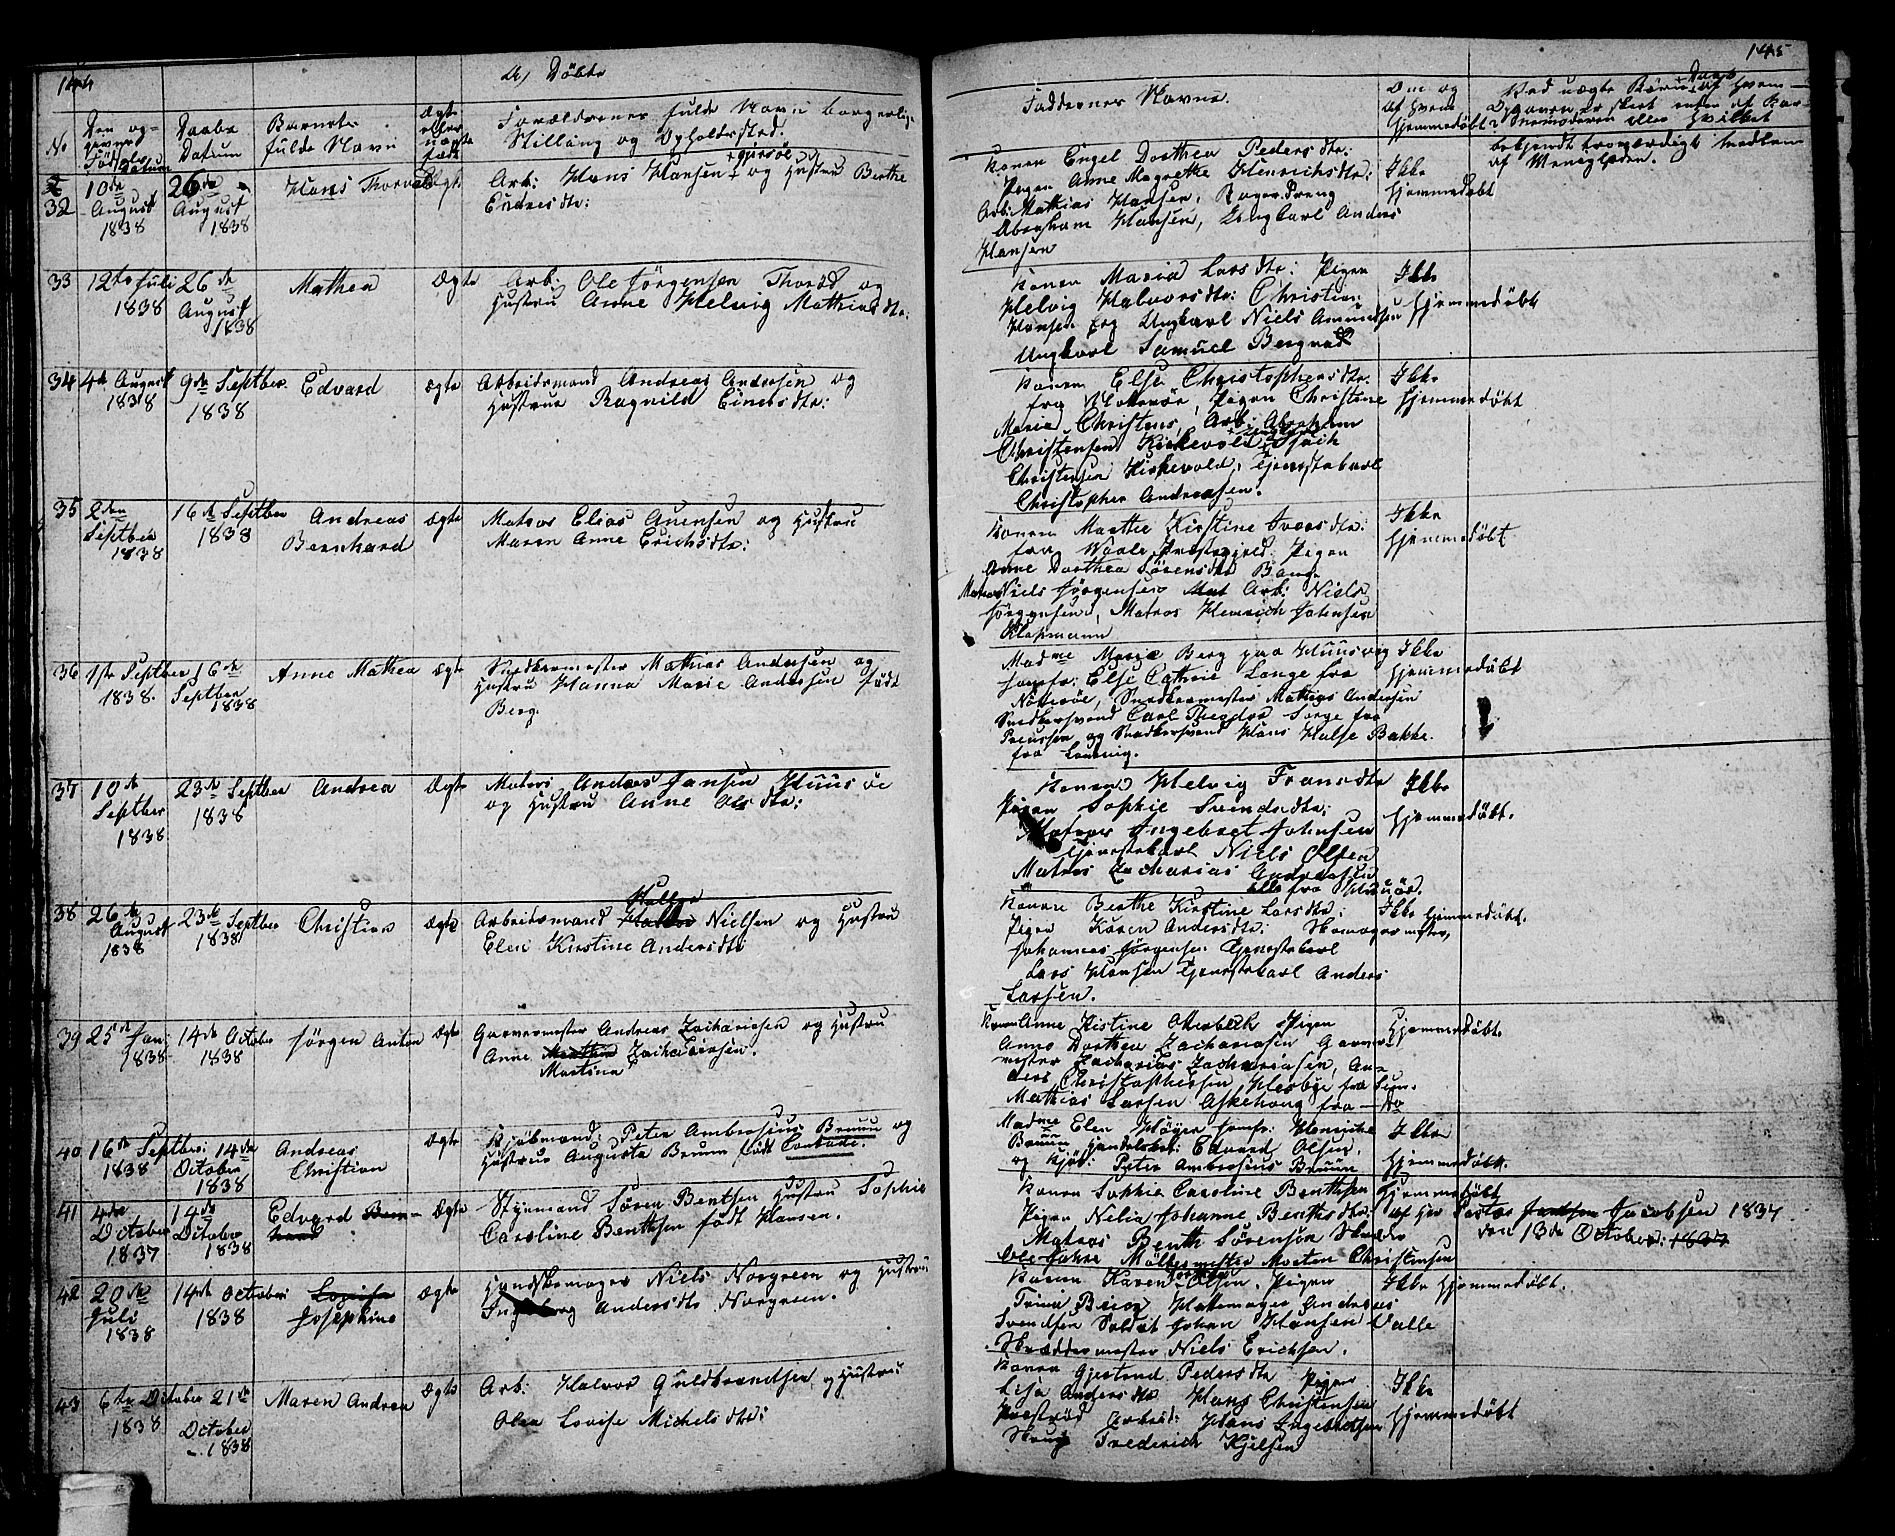 144
A, Döbte
No
Den op-
givne
Födsels
Datum
Daabs
Datum
Barnets
fulde Navn
Ægte
eller
uægte
født
Forældrenes fulde Navn borgerlige
Stilling og Opholdssted.
32
10de
August
1838
26de
August
1838
Hans Thorvald
Ægte
Arb: Hans Hansen og Hustru Berthe
Endresdtr:
33
12te Juli
1838
26de
August
1838
Mathea
Ægte
Arb: Ole Jörgensen Thoröd og
Hustru Anne Helvig Mathiasdtr:
34
4de August
1838
9de Septber
1838
Edvard
Ægte
Arbeidsmand Andreas Andersen og
Hustrue Ragnild Einersdtr:
35
2den
Septber
1838
16de Septber
1838
Andreas
Bernhard
Ægte
Matros Elias Evensen og Hustru
Maren Anne Erichsdtr:
36
1ste Septber
1838.
16de
Septber
1838
Anne Mathea
Ægte
Snedkermester Mathias Andersen og
Hustru Hanna Marie Andersen født
Berg.
37
10de
Septber
1838
23de Septber
1838
Andrea
Ægte
Matros Andreas Jansen Huusöe
og Hustru Anne Olsdtr:
38
26de
August
1838
23de Septber
1838
Christian
Ægte
Arbeidsmand Halvor Nielsen og Hustru
Elen Kirstine Andersdtr
39
25de Jan:
1838
14de October
1838
Jörgen Anton
Ægte
Garvermester Andreas Zachariasen og Hustru
Anne Marthea Zachariasen.
Martina
40
16de Septber:
1838
14de
October
1838
Andreas
Christian
Ægte
Kjöbmand: Peter Ambrosius Bruun og
Hustrue Augusta Bruun født Conradi.
41
4de
October
1837
14de
October
1838
Edvard Bern-
hard
Ægte
Styrmand Sören Bentsen Hustru Sophie
Caroline Benthsen født Hansen.
42
20de
Juli
1838
14de October
1838
Lovise
Josephine
Ægte
Handskemager Niels Norgreen og Hustru
Ingeborg Andersdtr Norgreen.
43
6te October
1838
21de
October
1838
Maren Andrea
Ægte
Arb: Halvor Guldbrandsen og Hustru
Olea Lovise Michelsdtr:
145
Faddernes Navne.
Om og
af hvem
Hjemmedöbt
Ved uægte Börn
Daab
af hvem
Opgaven er skeet enten af Bar-
nemoderen eller hvilket
bekjendt troværdigt Medlem
af Menigheden.
Konen Engel Dorthea Pedersdtr:
Pigen Anne Magrethe Henrichsdtr:
Arb: Mathias Hansen, Röger Dreng
Abraham Hansen, Ungkarl Anders
Hansen
Ikke
Hjemmedöbt
Konen Maria Larsdtr: Pigen
Helvig Halvorsdtr: Christian
Hansen og Ungkarl Niels Amundsen
Ungkarl Samuel Bergnes
Ikke
Hjemmedöbt
Konen Else Christophersdtr:
fra Nötteröe, Pigen Christine
Marie Christens, Arb: Abraham
Christensen Kirkevold
Christensen Kirkevold, Tjenestekarl
Christopher Andersen.
Ikke
Hjemmedöbt
Konen Marthe Kirstine Iversdtr:
fra Vaale Præstegjeld: Pigen
Anne Dorthea Sörensdtr
Matros Niels Jörgensen Arb: Niels
Jörgensen, Matros Henrich Johnsen
Klopmann
Ikke
Hjemmedöbt
Madme Marie Berg paa Huusvig
Jomfr: Else Cathrie Lange fra
Nötteröe, Snedkermester Mathias Andersen
Snedkersvend Carl Theodor Sorge fra
Preussen og Snedkersvend Hans Halse Bakke
fra Laurvig.
Ikke
Hjemmedöbt
Konen Helvig Fransdtr
Pigen Sophie Svendsdtr:
Matros Ingebret Johnsen
Tjenestekarl Niels Olsen
Matros Zacharias Andersen
alle fra Huusö.
Ikke
Hjemmedöbt.
Konen Berthe Kirstine Larsdtr:
Pigen Karen Andersdtr: Skomagermester,
Johannes Jörgensen Tjenestekarl
Lars Hansen Tjenestekarl Anders
Larsen.
Ikke Hjemmedöbt.
Konen Anne Kistine Otterbeck Pigen
Anne Dorthea Zachariasen Garver-
mester Zacharias Zachariasen, An-
ders Christophersen Hesbye fra Sem.
Mathias Larsen Askehoug fra - do
Hjemmedöbt.
Madme Elen Höyer Jomfr: Henriche
Bruun Handelsbet: Edvard Olsen,
og Kjöb: Peter Ambrosius Bruun
Ikke
Hjemmedöbt.
Konen Sophie Caroline Benthsen
Pigen Nelia Johanne Benthsdtr:
Matros Benth Sörensen
Ole Mollermester Morten Christensen
Hjemmedöbt
af Hr Pastor Jacobsen 1837
den 13de October: 1837
Konen Karen Olsen, Pigen
Trine Hattemager Andreas
Svendsen Soldat Johan Hansen Valle
Skræddermester Niels Erichsen.
Ikke Hjemmedöbt.
Konen Gjertrud Pedersdtr Pigen
Lisa Andersdtr Hans Christensen
Præströd Arbeid: Hans Ingebretsen
Frederich Kjelsen
Ikke
Hjemmedöbt